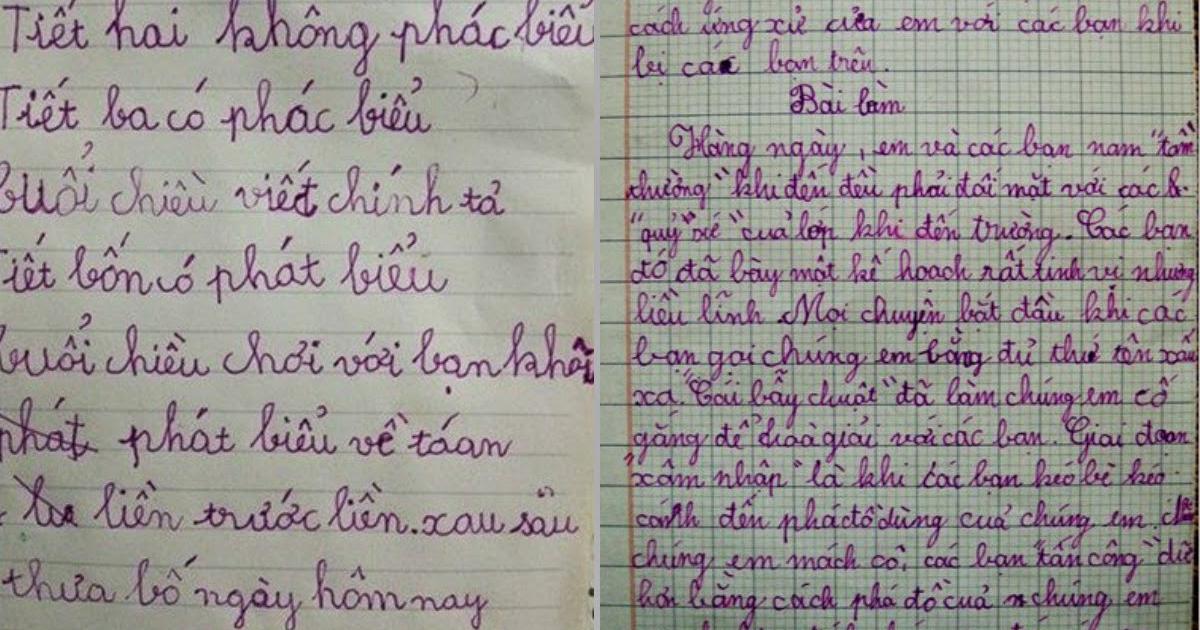 Tiết hai không phác biểu
Tiết ba có phác biểu
buổi chiều viết chính tả
Tiết bốn có phát biểu
buổi chiều chơi với bạn khôi
phát phát biểu về táan
liền trước liền.xau sâu
thưa bố ngày hôm nay
cách ứng xử của em với các bạn khi
bị các bạn trêu.
Bài làm
Hàng ngày, em và các bạn nam "tầm
thường" khi đến đều phải đối mặt với các
"quỷ" xé "của lớp khi đến trường. Các bạn
đó đã bày một kế hoạch rất tinh vị nhưng
liều lĩnh. Mọi chuyện bắt đầu khi các
bạn gọi chúng em bằng đủ thứ tên xấu
xa. "Cái bẫy chuột" đã làm chúng em cố
gắng để hoà giải với các bạn. Giai đoạn
xâm nhập" là khi các bạn kéo bè kéo
cánh đến phá đồ dùng cuả chúng em.
chúng em mách cô, các bạn "tấn công" dữ
hơn bằng cách phá đồ cuả chúng em